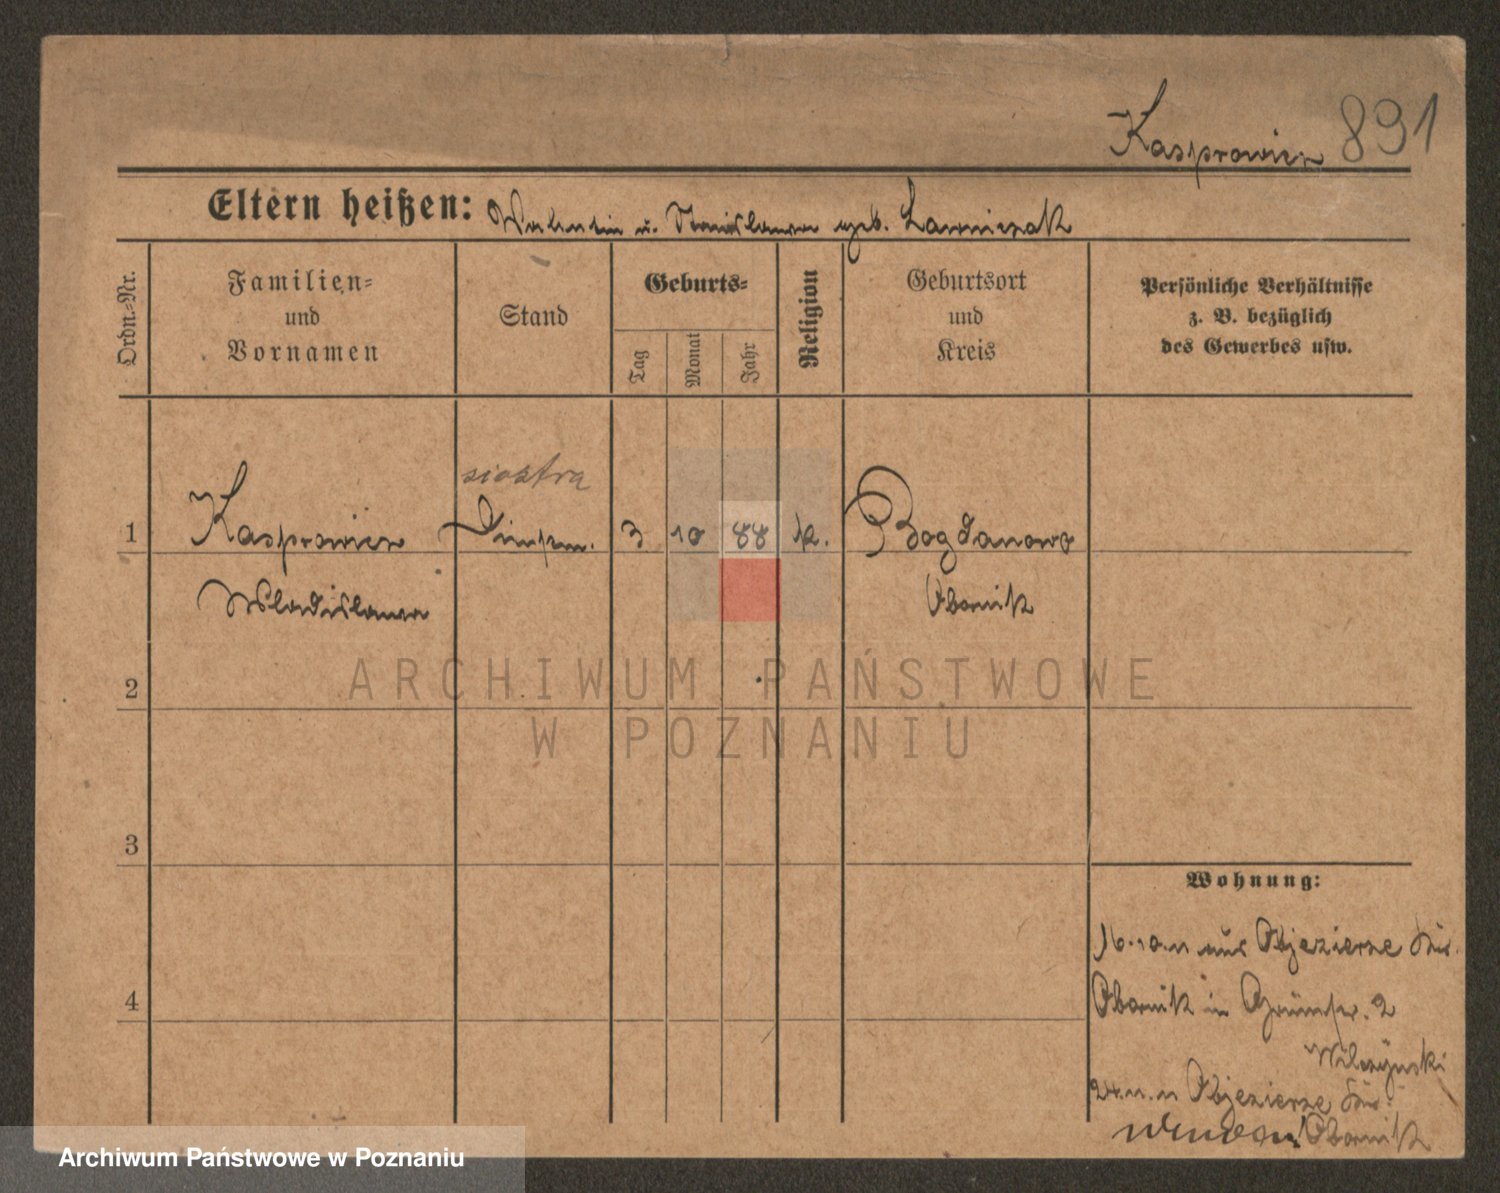 Kasprowicz 891
Eltern heißen: Valentin u. Stanislawa geb. Lawniczak
Ordn.-Nr.
Familien-
und
Vornamen
Stand
Geburts-
Tag
Monat
Jahr
Religion
Geburtsort
und
Kreis
Persönliche Verhältnisse
z. B. bezüglich
des Gewerbes usw.
siostra
1 Kasprowicz 3 10 88 k. Bogdanowo
Wladislawa Obornik
2
3
4
Wohnung:
16.10.11 aus Objezierze Kr.
Obornik in 2
Wilczynski
24.11.11 Objezierze Kr.
Obornik
ARCHIWUM PAŃSTWOWE
W POZNANIU
Archiwum Państwowe w Poznaniu